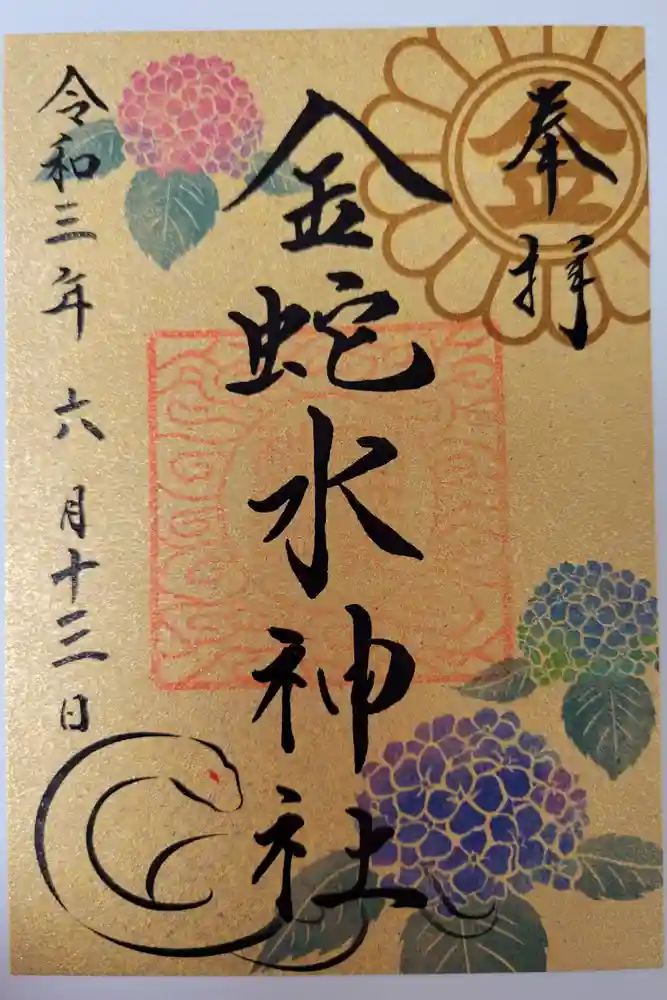 奉拝
金
金蛇水神社
令和三年 六月十三日